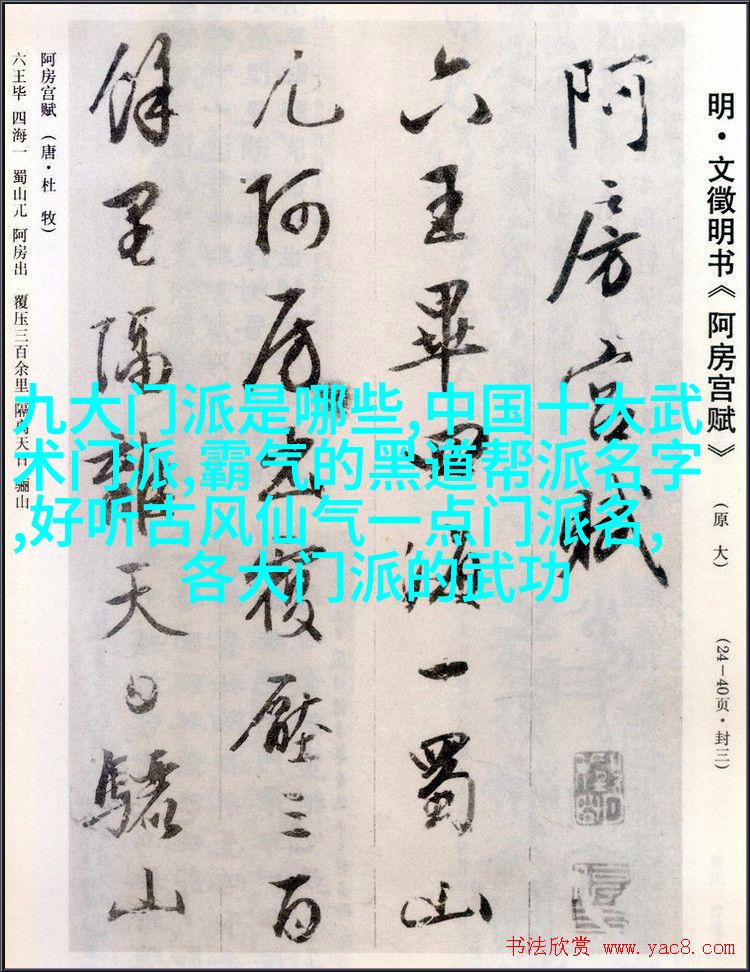 九大门派是哪些,中国十大武
术门派,霸气的黑道帮派名字
,好听古风仙气一点门派名,
各大门派的武功
明·文徵明书《阿房宫赋》 (原大) (24—40页·封三)
阿房宫赋
六王畢四海一蜀山
兀阿房出覆壓三百
餘里隔離天日驪山
阿房宫赋（唐·杜牧）
六王毕 四海一 蜀山兀 阿房出 覆压三百余里 隔离天日 骊山
书法欣赏 www.yac8.com